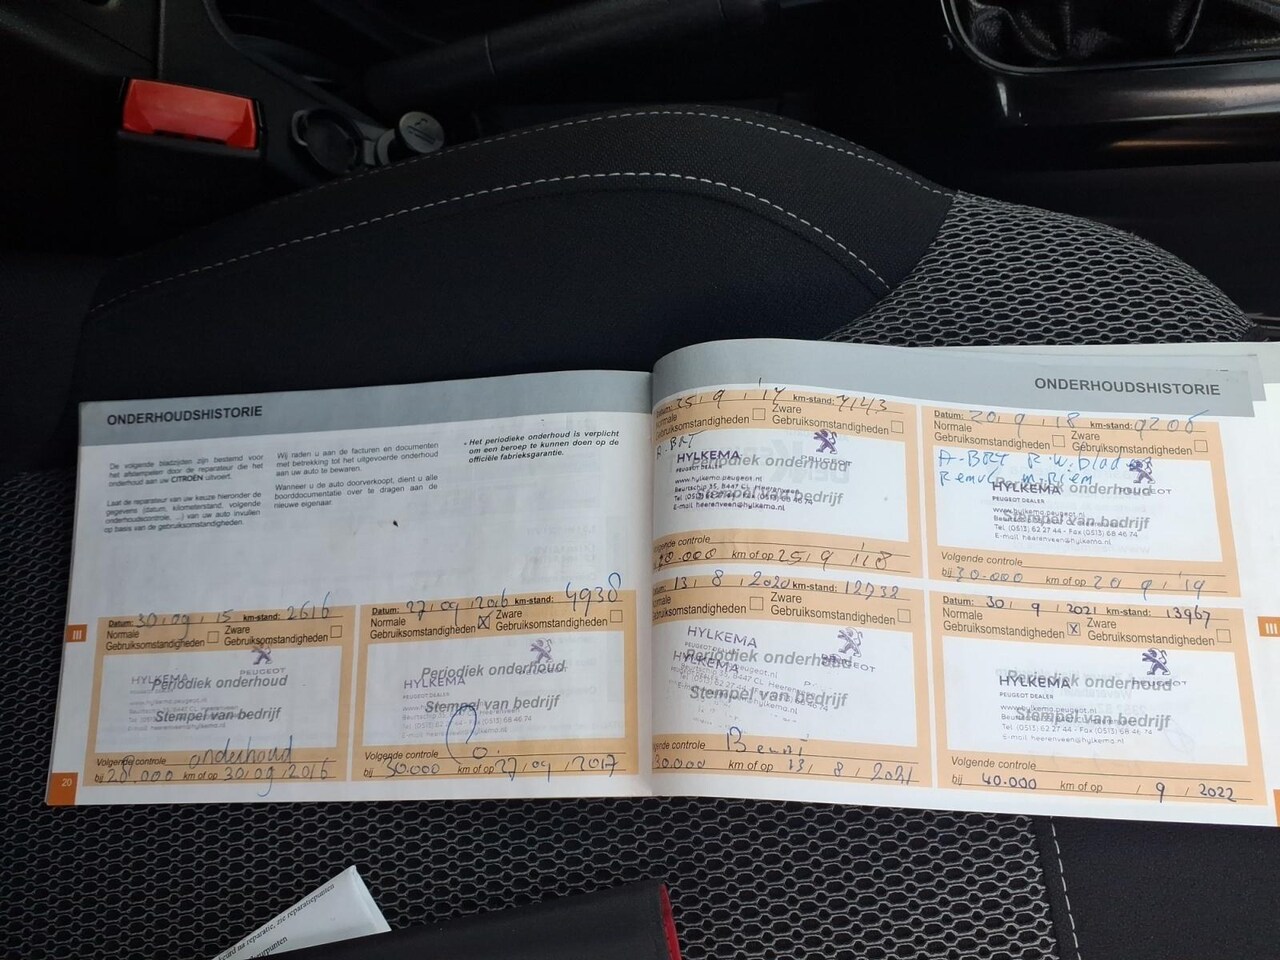 ONDERHOUDSHISTORIE
De volgende bladzijden zijn bestemd voor
het afstempelen door de reparateur die het
onderhoud aan uw CITROËN uitvoert.
Laat de reparateur van uw keuze hieronder de
gegevens (datum, kilometerstand, volgende
onderhoudscontrole, ...) van uw auto invullen
op basis van de gebruiksomstandigheden.
Wij raden u aan de facturen en documenten
met betrekking tot het uitgevoerde onderhoud
aan uw auto te bewaren.
Wanneer u de auto doorverkoopt, dient u alle
boorddocumentatie over te dragen aan de
nieuwe eigenaar.
• Het periodieke onderhoud is verplicht
om een beroep te kunnen doen op de
officiële fabrieksgarantie.
Datum: 30/09/15 km-stand: 2616
Normale Zware
Gebruiksomstandigheden Gebruiksomstandigheden
PEUGEOT
HYLKEMA
Periodiek onderhoud
Stempel van bedrijf
onderhoud
Volgende controle
bij 20.000 km of op 30/09/2016
Datum: 27/09/2016 km-stand: 4938
Normale Zware
Gebruiksomstandigheden X Gebruiksomstandigheden
Periodiek onderhoud
PEUGEOT
HYLKEMA
PEUGEOT DEALER
Stempel van bedrijf
Volgende controle
bij 30.000 km of op 27/09/2017
20
III
ONDERHOUDSHISTORIE
Datum: 25/9/17 km-stand: 7143
Normale Zware
Gebruiksomstandigheden Gebruiksomstandigheden
A-BRT
HYLKEMA
PEUGEOT DEALER
Periodiek onderhoud
www.hylkema.peugeot.nl
Beurtschip 35, 8447 CL Heerenveen
Stempel van bedrijf
E-mail heerenveen@hylkema.nl
Volgende controle
20.000 km of op 25/9/18
Datum: 20/9/18 km-stand: 9206
Normale Zware
Gebruiksomstandigheden Gebruiksomstandigheden
A-BRT R.W.blad
Periodiek onderhoud
HYLKEMA
PEUGEOT
PEUGEOT DEALER
www.hylkema.peugeot.nl
Stempel van bedrijf
Tel. (0513) 62 27 44 - Fax (0513) 68 46 74
E-mail heerenveen@hylkema.nl
Volgende controle
bij 30.000 km of op 20/9/19
Datum: 13/8/2020 km-stand: 12732
Normale Zware
Gebruiksomstandigheden Gebruiksomstandigheden
HYLKEMA
HYLKEMA
Periodiek onderhoud
PEUGEOT
Stempel van bedrijf
Volgende controle
30.000 km of op 13/8/2021
Datum: 30/9/2021 km-stand: 13967
Normale Zware
Gebruiksomstandigheden X Gebruiksomstandigheden
HYLKEMA
Periodiek onderhoud
PEUGEOT
PEUGEOT DEALER
www.hylkema.peugeot.nl
Stempel van bedrijf
Tel. (0513) 62 27 44 - Fax (0513) 68 46 74
E-mail heerenveen@hylkema.nl
Volgende controle
bij 40.000 km of op /9/2022
III